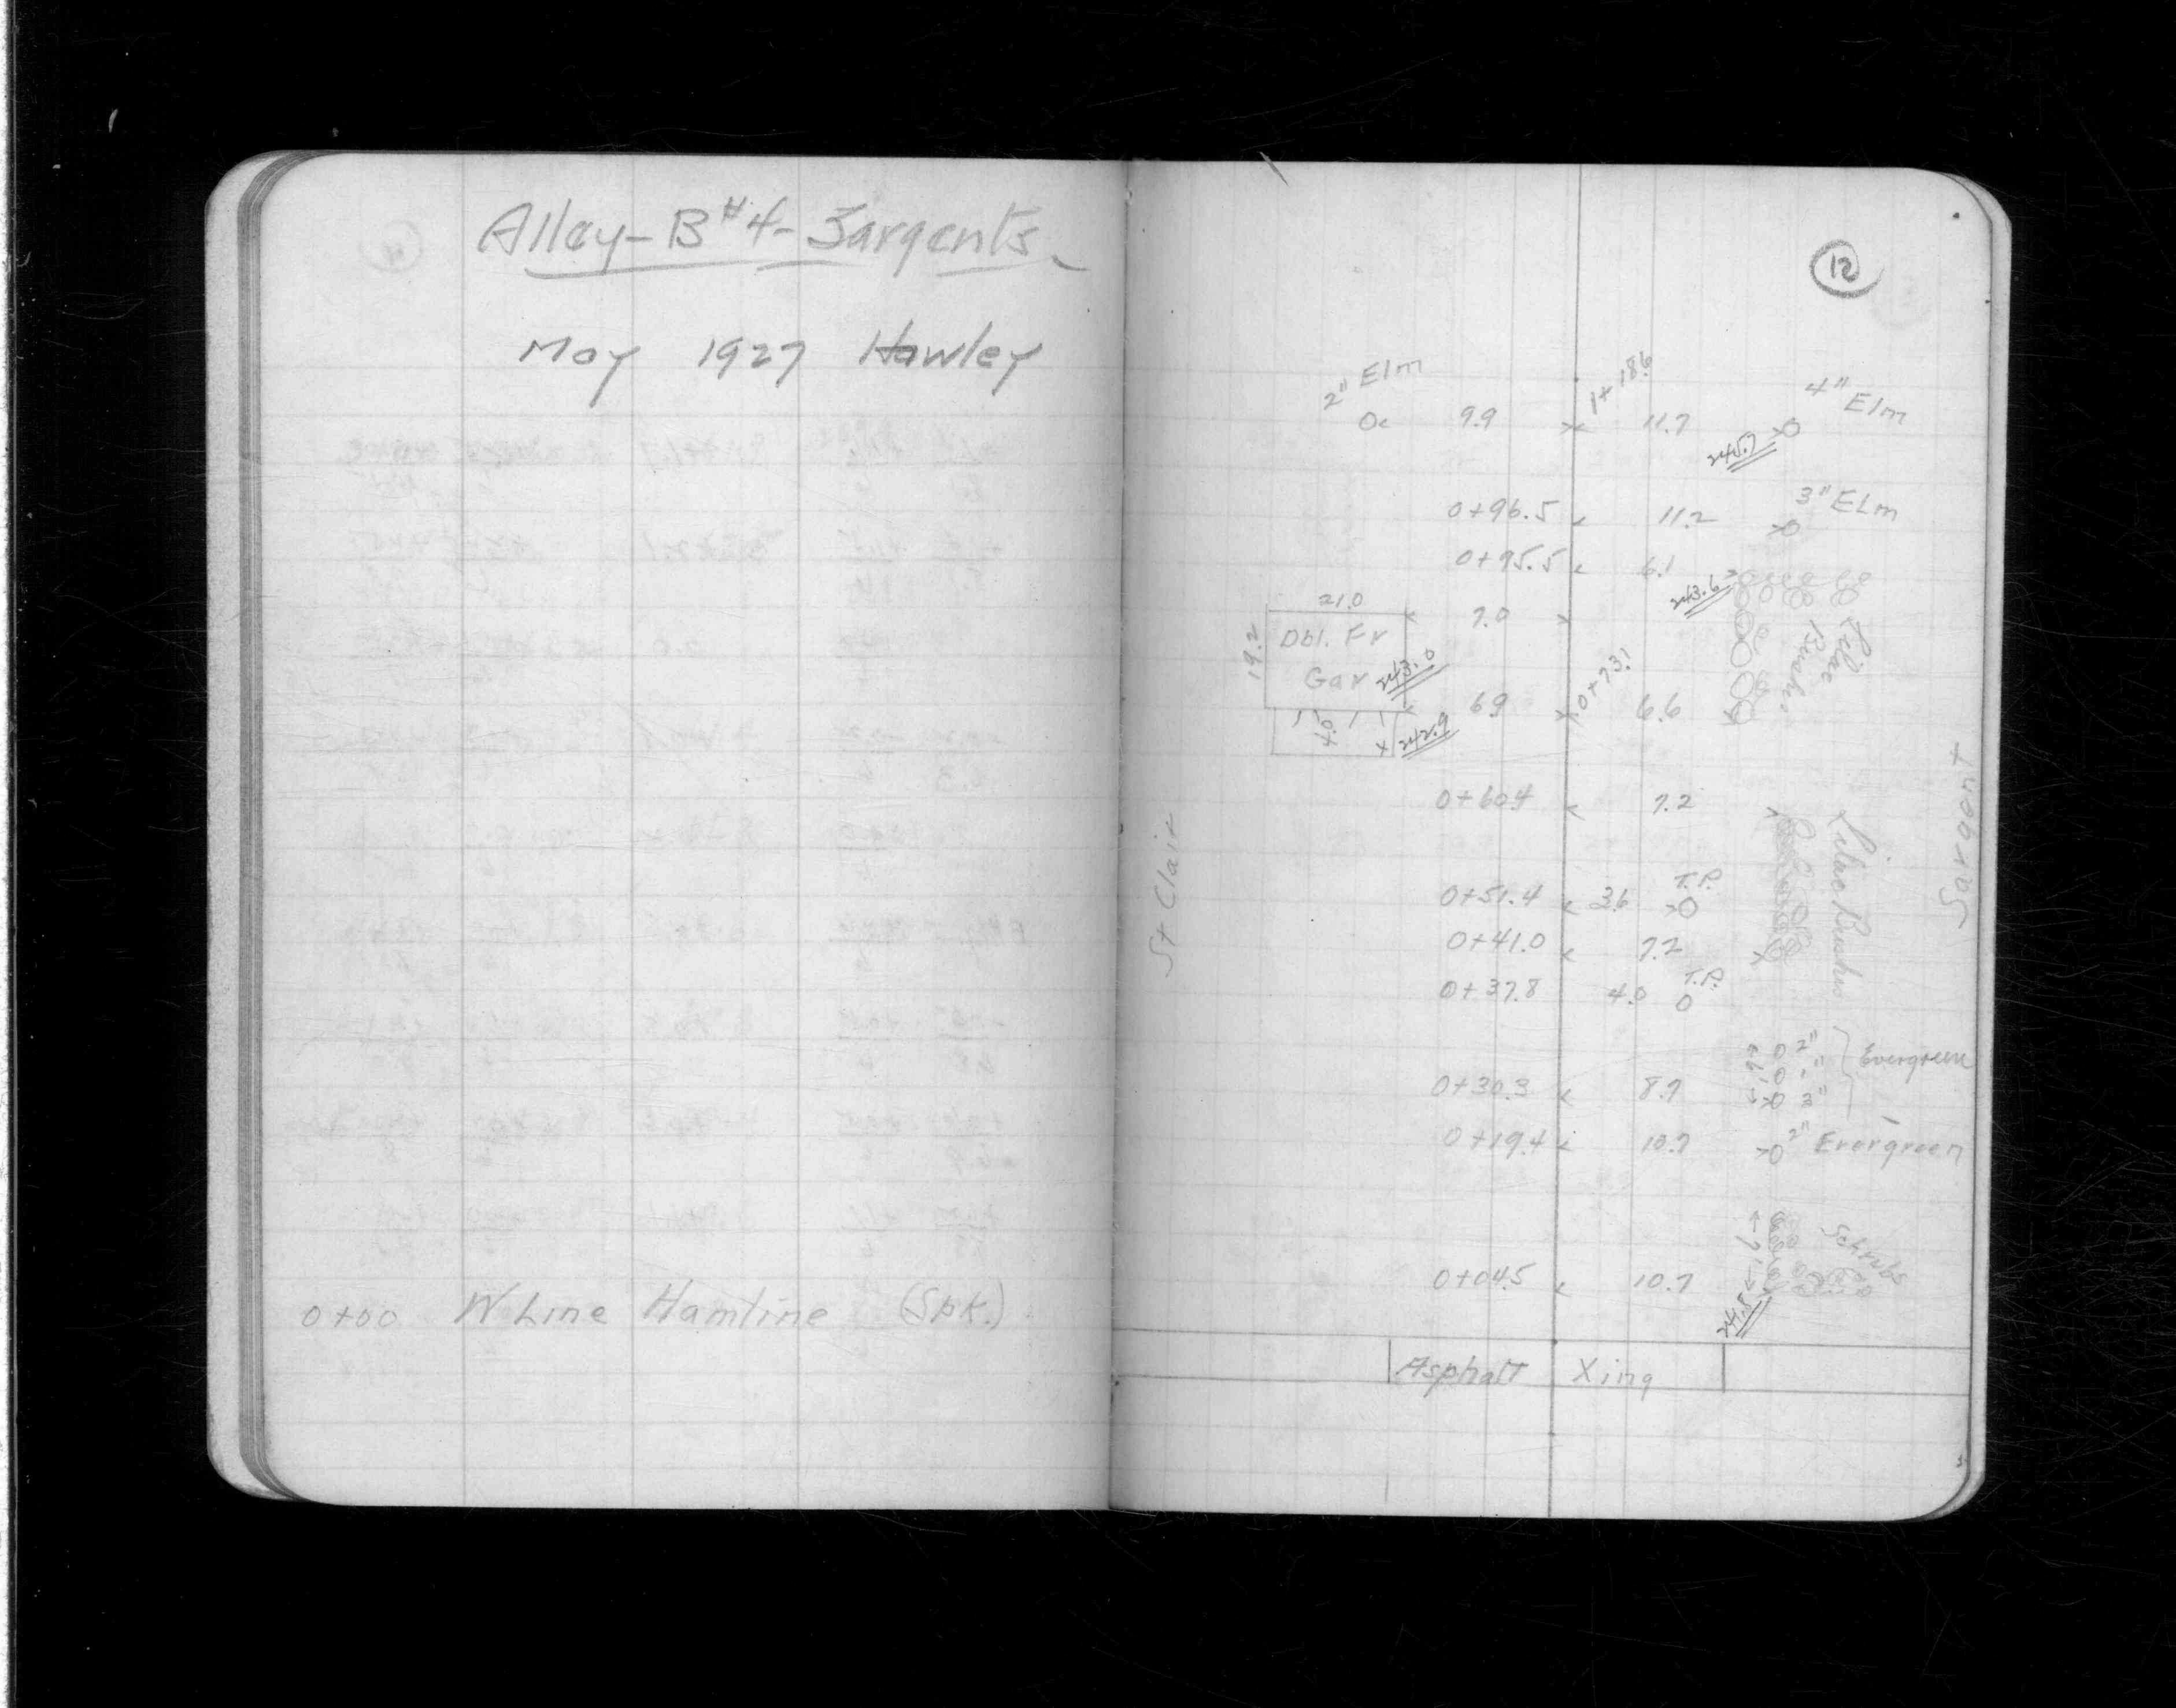 Alley - B#4 - Sargents
May 1927 Hawley
0+00 W Line Hamline (Spk.)
12
2" Elm
1+18.6
4" Elm
9.9
11.7
245.7
3" Elm
0+96.5 11.2
0+95.5 6.1
243.6
21.0
7.0
19.2
Dbl. Fr
Gar
243.0
Lilac
Bushes
0+73.1
6.9
6.6
4.0
242.9
0+60.4 7.2
Sargent
St Clair
Lilac Bushes
T.P.
0+51.4 3.6
0+41.0 7.2
T.P.
0+37.8 4.0
2"
"
Evergreen
0+30.3 8.7 3"
0+19.4 10.7 2" Evergreen
Schrubs
0+04.5 10.7
241.8
Asphalt Xing